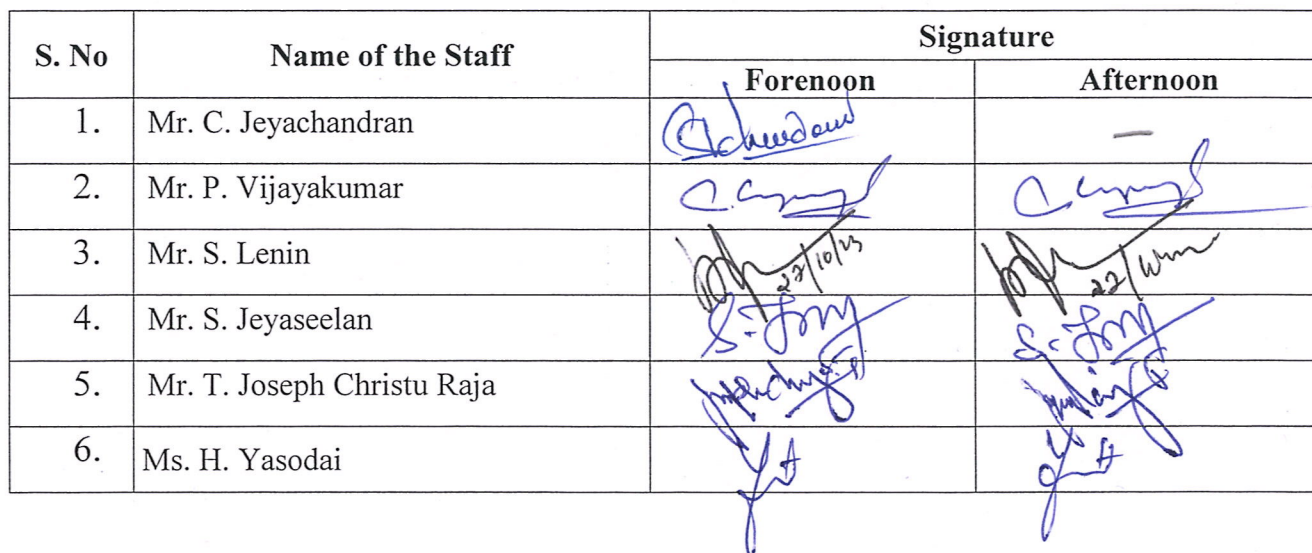 S. No Name of the Staff Signature
Forenoon Afternoon
1. Mr. C. Jeyachandran —
2. Mr. P. Vijayakumar
3. Mr. S. Lenin 22/10/23 22/
4. Mr. S. Jeyaseelan
5. Mr. T. Joseph Christu Raja
6. Ms. H. Yasodai